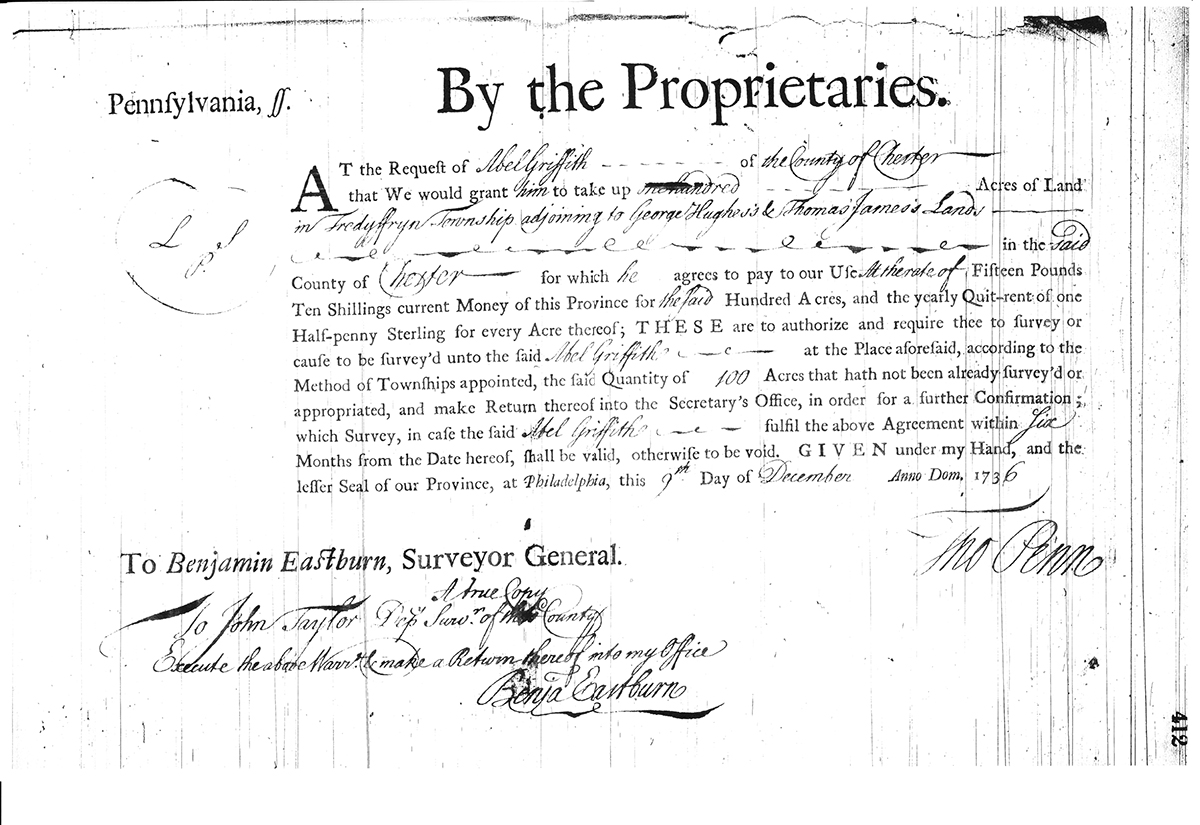 By the Proprietaries.
Pennſylvania, ſſ.
AT the Requeſt of Abel Griffith of the County of Chester
that We would grant him to take up one hundred Acres of Land
in Tredyffryn Township adjoining to George Hughes's & Thomas James's Lands
in the Said
County of Chester for which he agrees to pay to our Uſe At the rate of Fifteen Pounds
Ten Shillings current Money of this Province for the ſaid Hundred Acres, and the yearly Quit-rent of one
Half-penny Sterling for every Acre thereof; THESE are to authorize and require thee to ſurvey or
cauſe to be ſurvey'd unto the ſaid Abel Griffith at the Place aforeſaid, according to the
Method of Townſhips appointed, the ſaid Quantity of 100 Acres that hath not been already ſurvey'd or
appropriated, and make Return thereof into the Secretary's Office, in order for a further Confirmation;
which Survey, in caſe the ſaid Abel Griffith fulfil the above Agreement within Six
Months from the Date hereof, ſhall be valid, otherwiſe to be void. GIVEN under my Hand, and the
leſſer Seal of our Province, at Philadelphia, this 9th Day of December Anno Dom. 1736
L S
P.
Tho Penn
To Benjamin Eastburn, Surveyor General.
A true Copy
To John Taylor Depy Survr. of the County
Execute the above Warrt. & make a Return thereof into my Office
Benja Eastburn
412